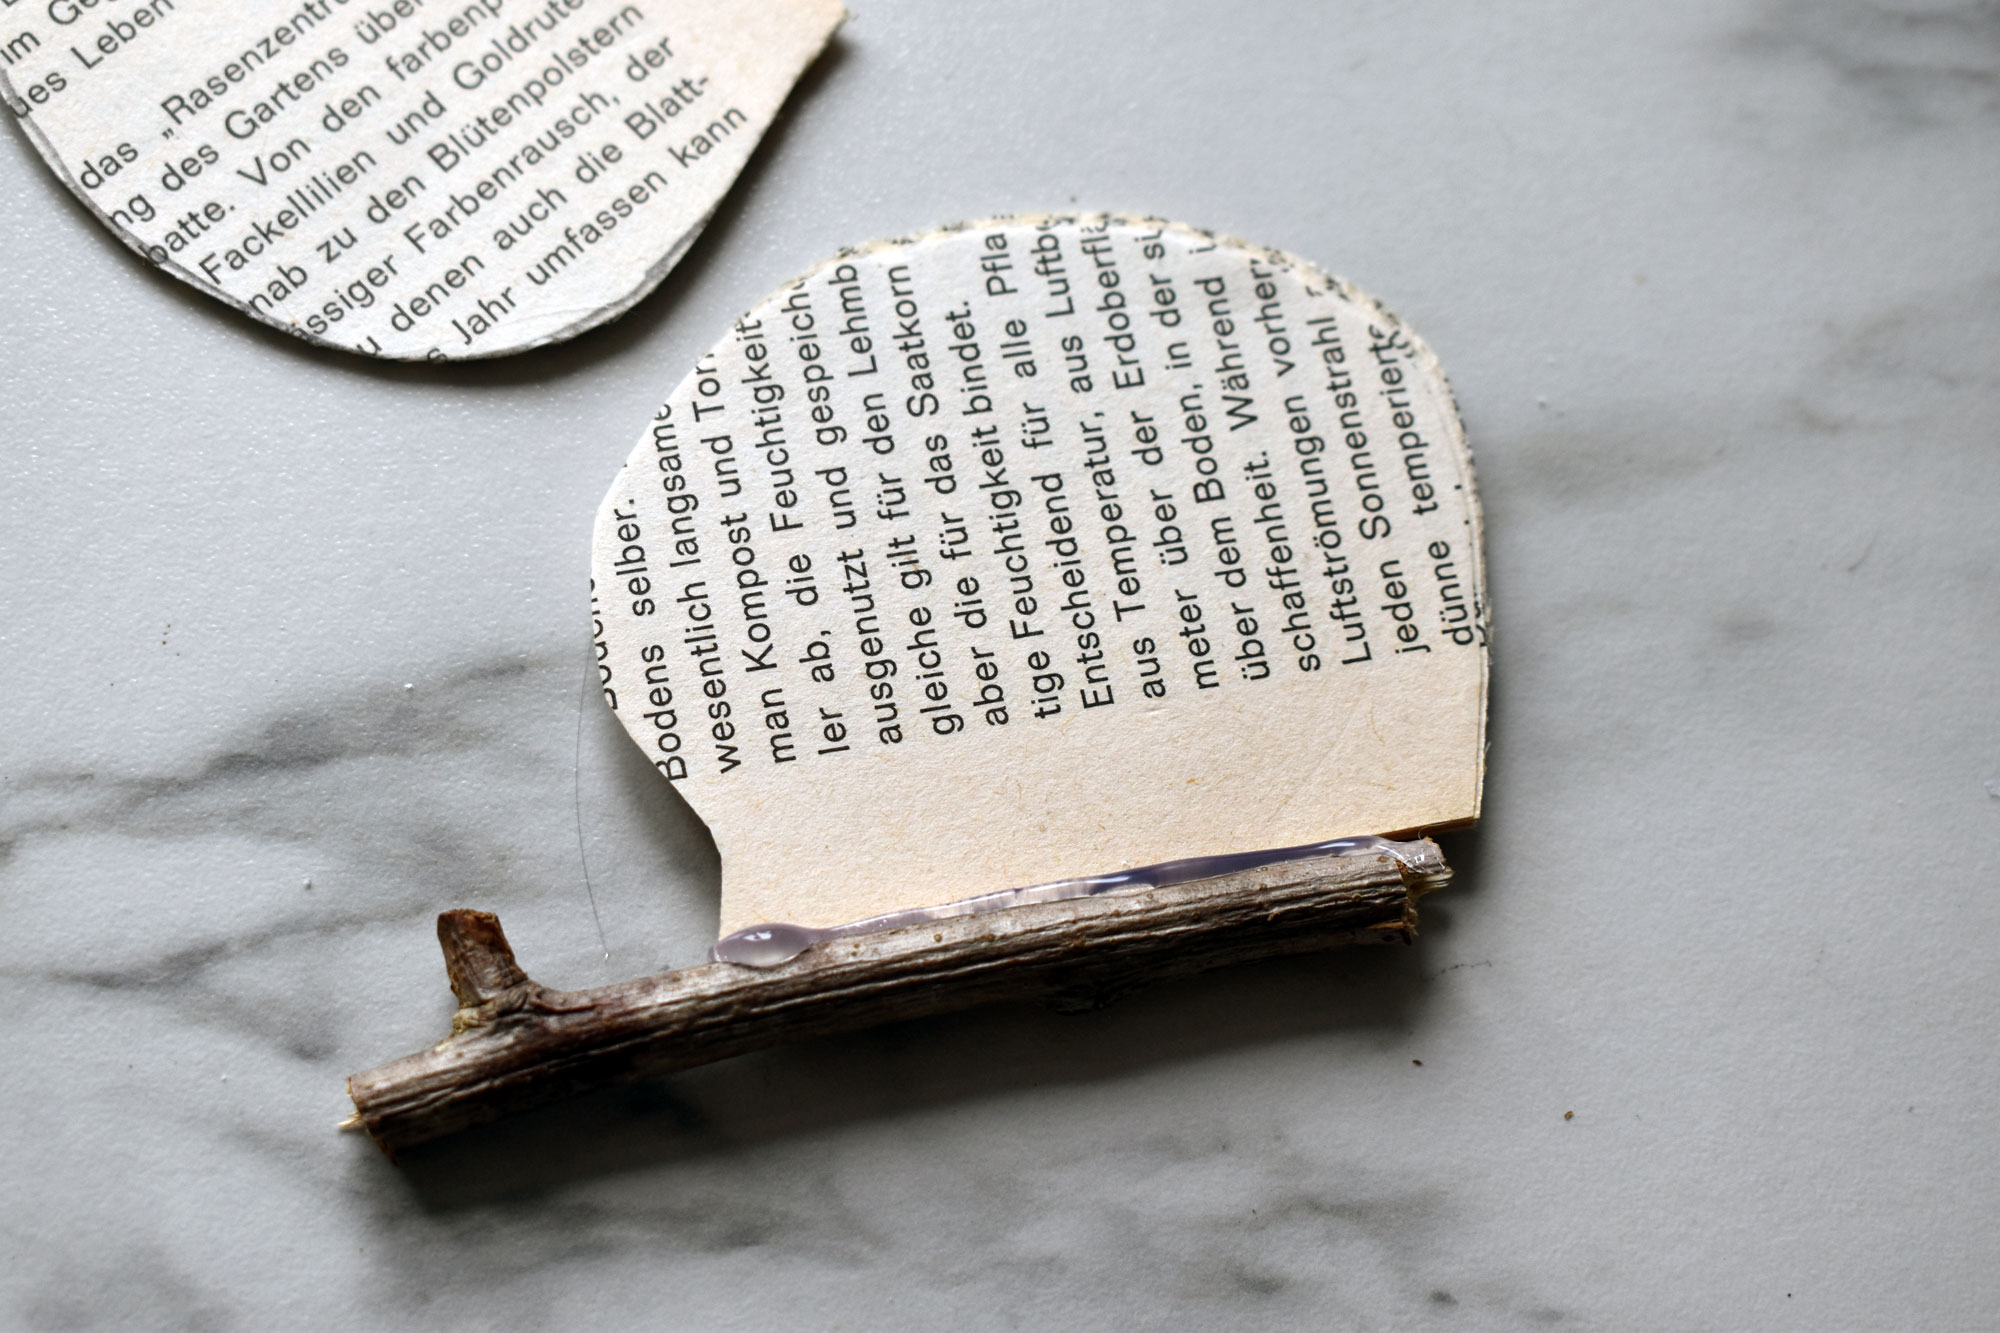 im
des Leben
das „Rasenzentr
ng des Gartens über
batte. Von den farbenp
Fackellilien und Goldrute
nab zu den Blütenpolstern
ssiger Farbenrausch, der
u denen auch die Blatt-
s Jahr umfassen kann
Bodens selber.
wesentlich langsame
man Kompost und Tor
ler ab, die Feuchtigkeit
ausgenutzt und gespeich
gleiche gilt für den Lehmb
aber die für das Saatkorn
tige Feuchtigkeit bindet.
Entscheidend für alle Pfla
aus Temperatur, aus Luftb
meter über der Erdoberflä
über dem Boden, in der si
schaffenheit. Während i
Luftströmungen vorher
jeden Sonnenstrahl
dünne temperierte